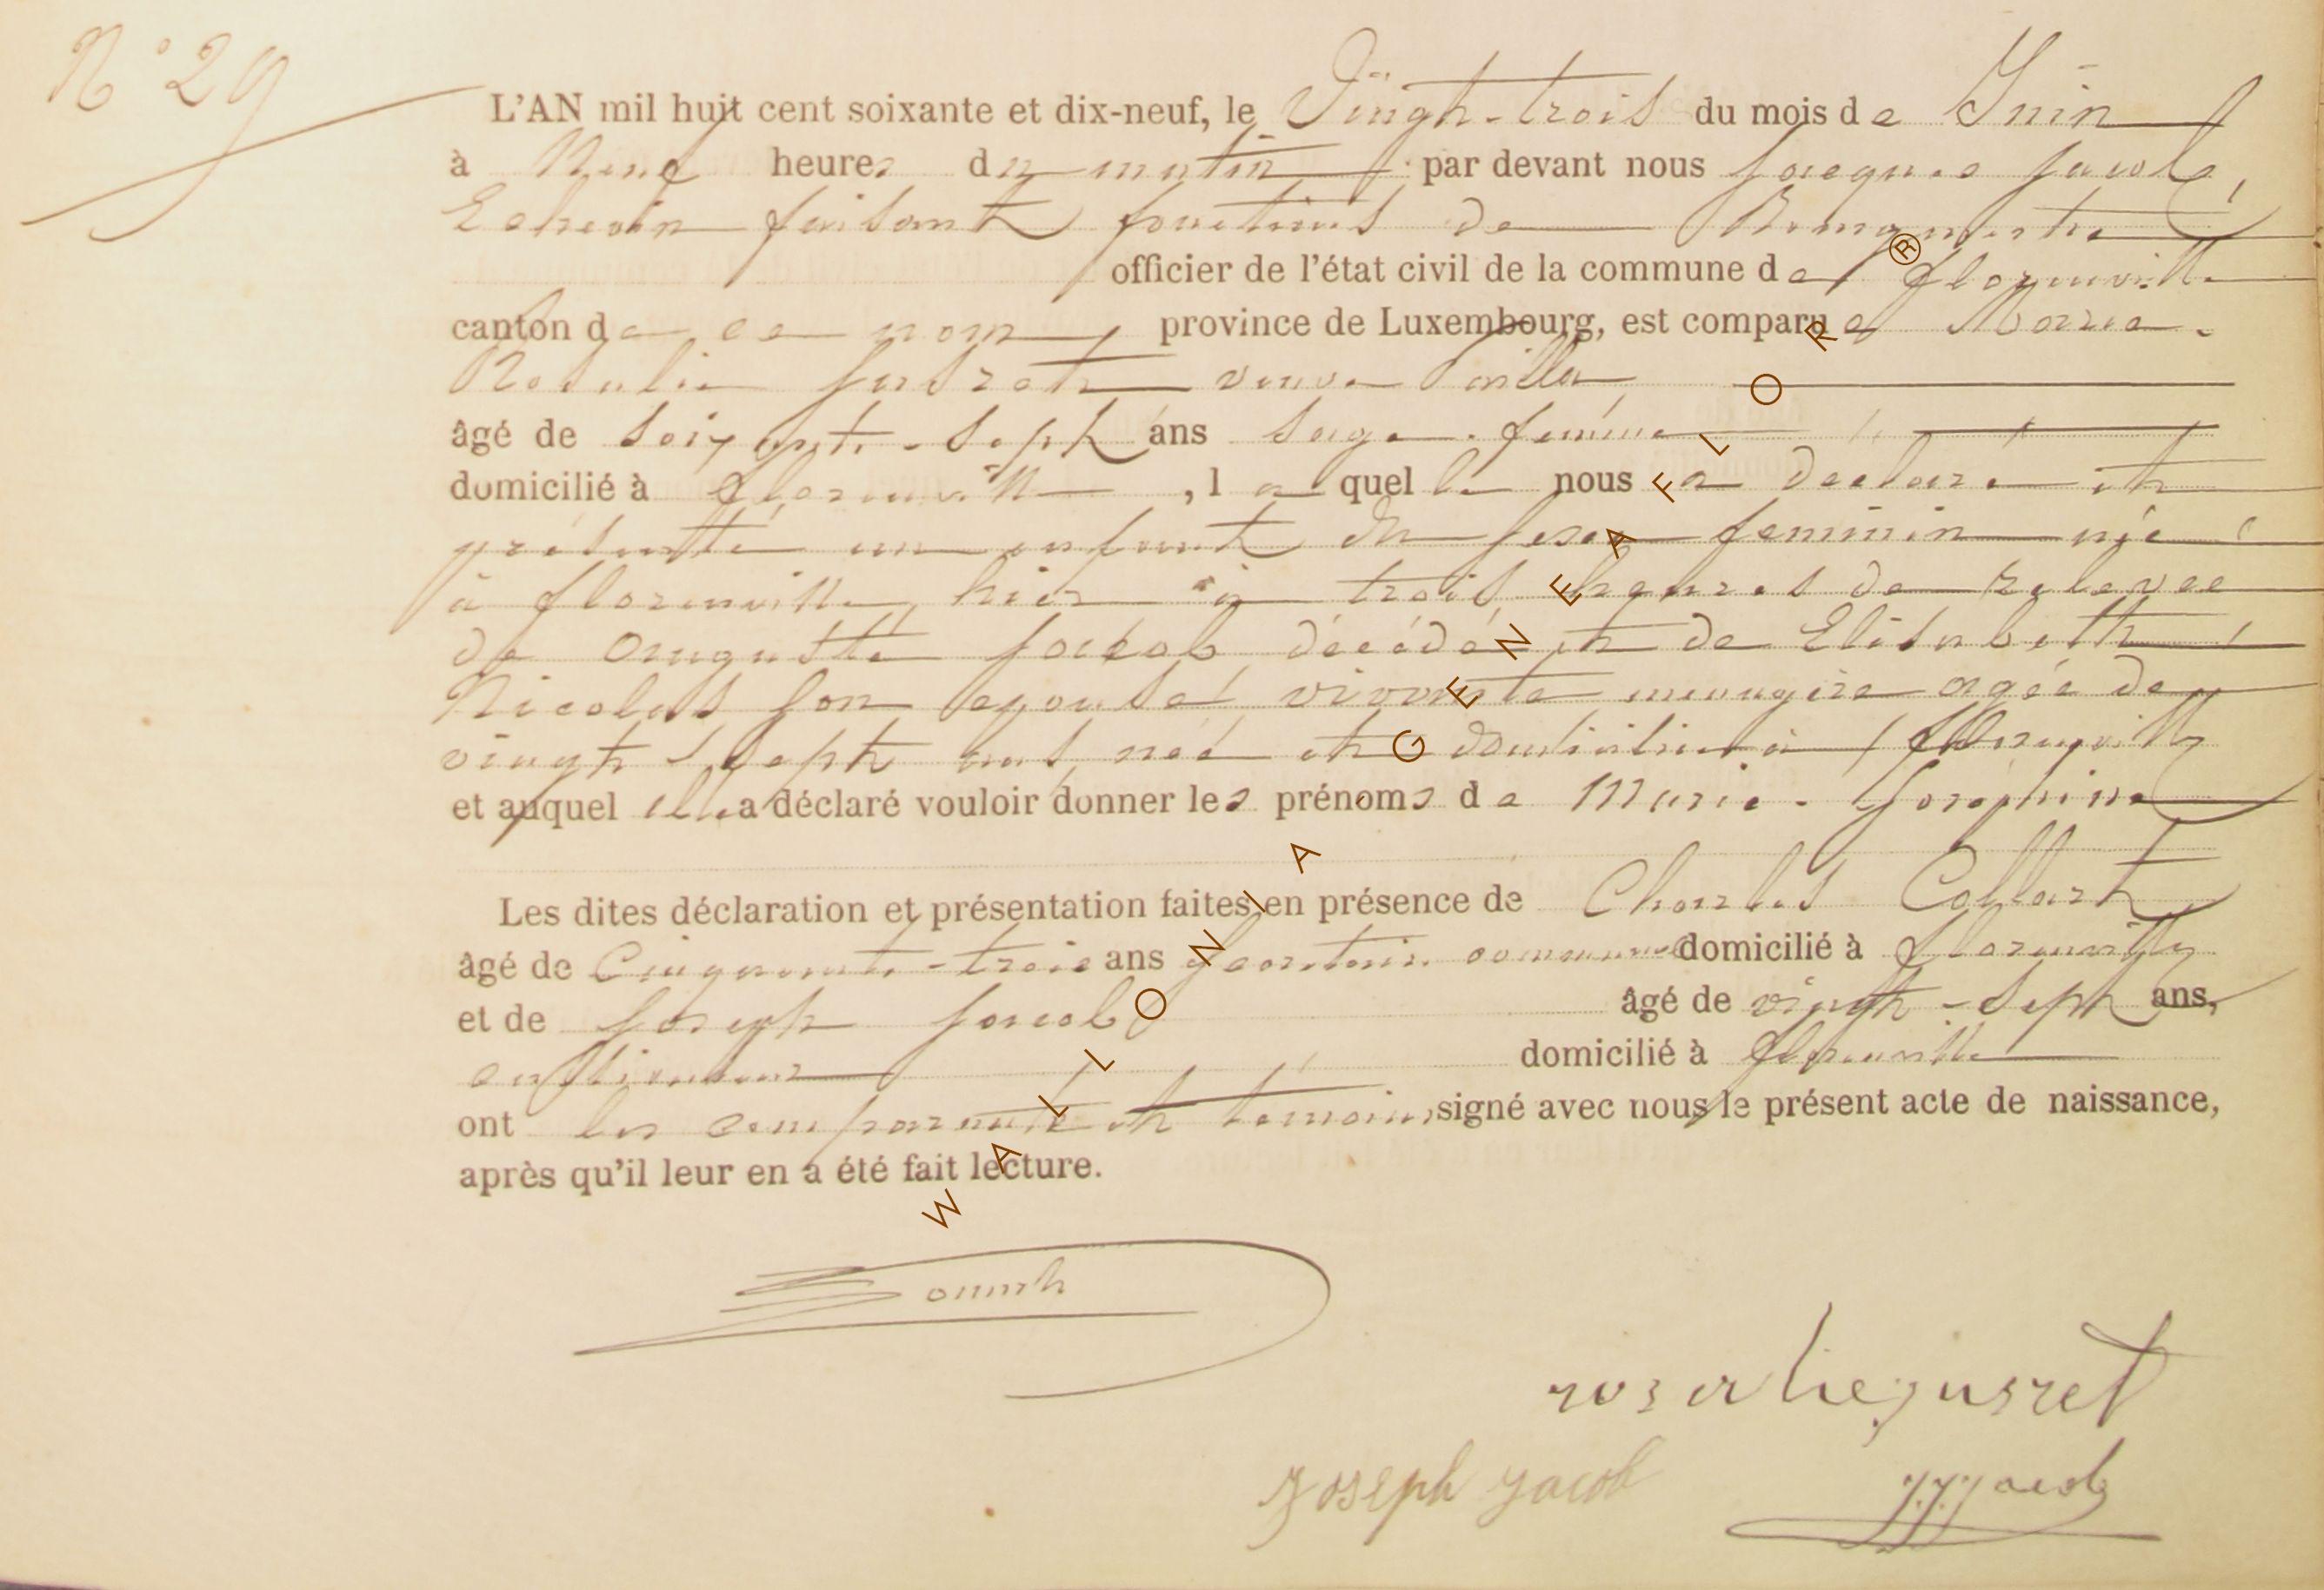 N° 29
L'AN mil huit cent soixante et dix-neuf, le Vingt-trois du mois de Juin
à Neuf heures du matin par devant nous Jacques Jacob,
Echevin faisant fonctions de Bourgmestre
officier de l'état civil de la commune de Florenville
canton de ce nom, province de Luxembourg, est comparue Marie-
Rosalie Jusret veuve
âgé de soixante-sept ans sage-femme
domicilié à Florenville, laquelle nous a déclaré et
présenté un enfant du sexe feminin née
à Florenville, hier à trois heures de relevée
de Auguste Jacob décédé, et de Elisabeth
Nicolas son epouse, vivante menagère agée de
vingt-sept ans, née et domiciliée à Florenville
et auquel elle a déclaré vouloir donner les prénoms de Marie-Josephine
Les dites déclaration et présentation faites en présence de Charles Collart
âgé de Cinquante-trois ans domicilié à Florenville
et de Joseph Jacob âgé de vingt-sept ans,
cultivateur domicilié à Florenville
ont les comparante et temoins signé avec nous le présent acte de naissance,
après qu'il leur en a été fait lecture.
rosalie jusret
Joseph Jacob
J.J. Jacob
WALLONIA GENEAFLOR®